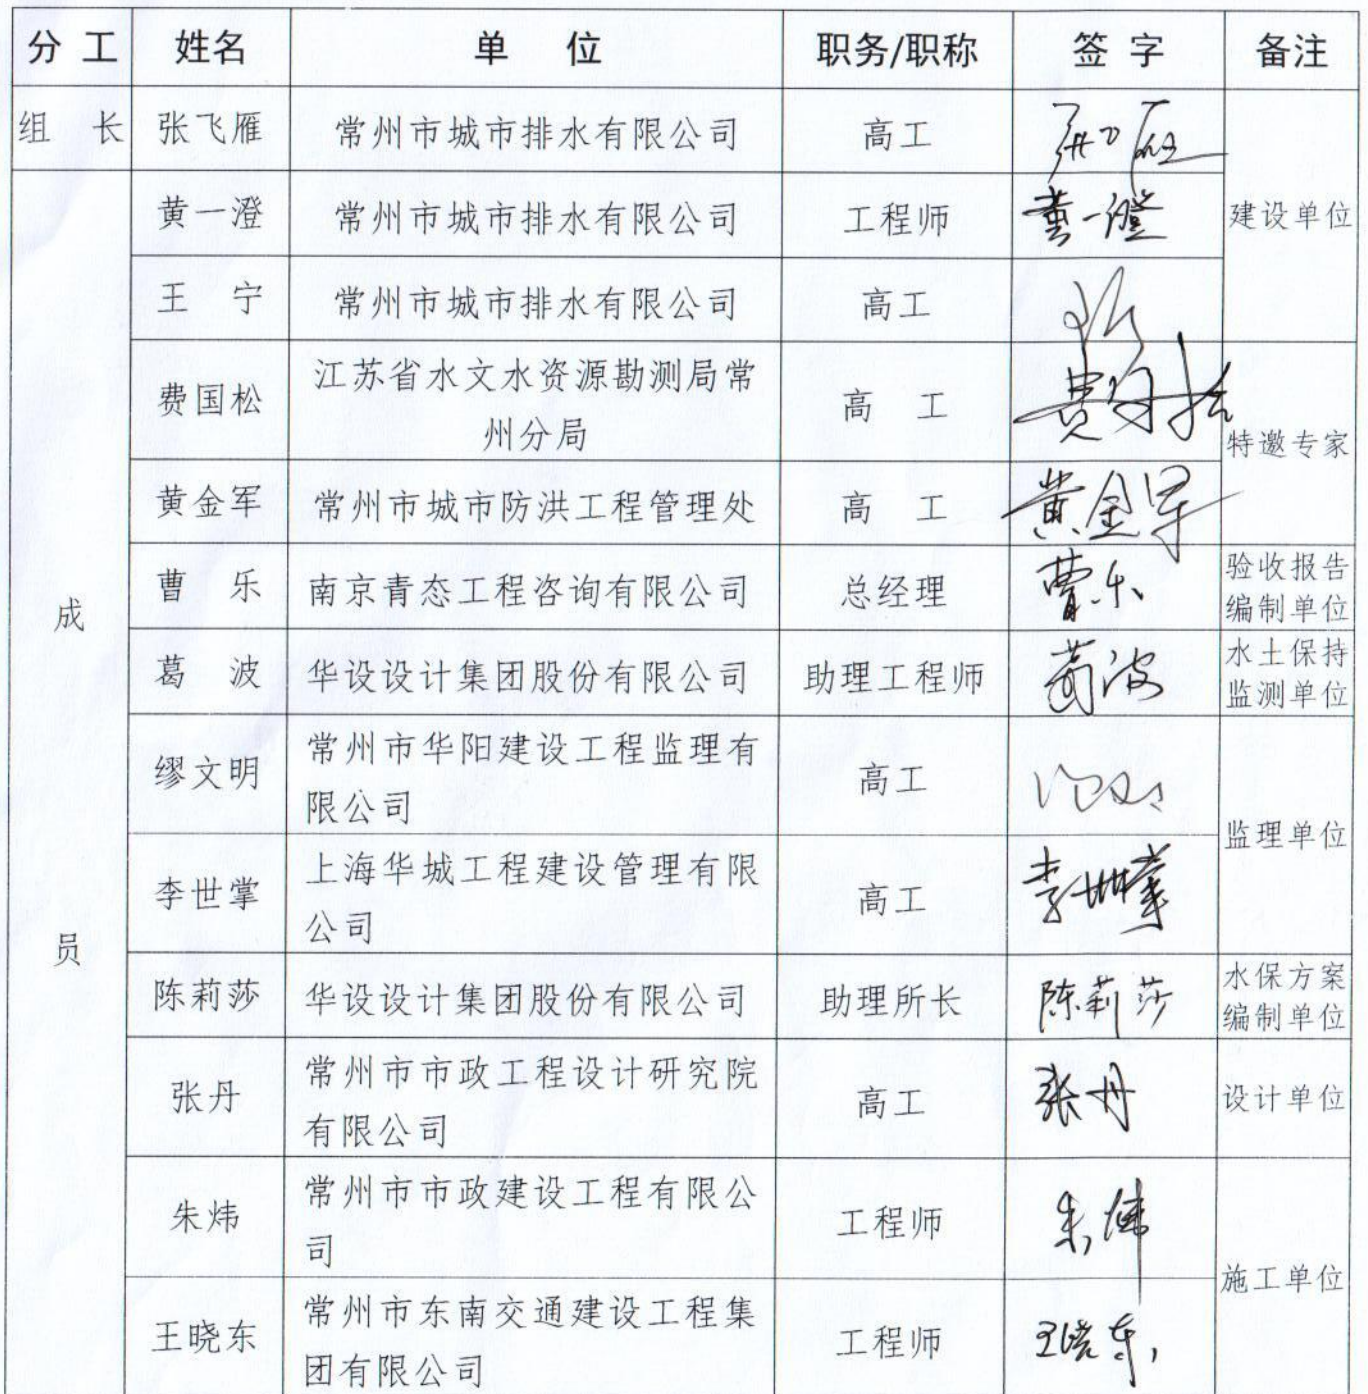 分 工 姓名 单 位 职务/职称 签 字 备注
组 长 张飞雁 常州市城市排水有限公司 高工
黄一澄 常州市城市排水有限公司 工程师 黄一澄 建设单位
王 宁 常州市城市排水有限公司 高工
费国松 江苏省水文水资源勘测局常
州分局 高 工 费国松 特邀专家
黄金军 常州市城市防洪工程管理处 高 工 黄金军
成
员
曹 乐 南京青态工程咨询有限公司 总经理 曹乐 验收报告
编制单位
葛 波 华设设计集团股份有限公司 助理工程师 葛波 水土保持
监测单位
缪文明 常州市华阳建设工程监理有
限公司 高工
监理单位
李世掌 上海华城工程建设管理有限
公司 高工 李世掌
陈莉莎 华设设计集团股份有限公司 助理所长 陈莉莎 水保方案
编制单位
张丹 常州市市政工程设计研究院
有限公司 高工 张丹 设计单位
朱炜 常州市市政建设工程有限公
司 工程师 朱炜
施工单位
王晓东 常州市东南交通建设工程集
团有限公司 工程师 王晓东